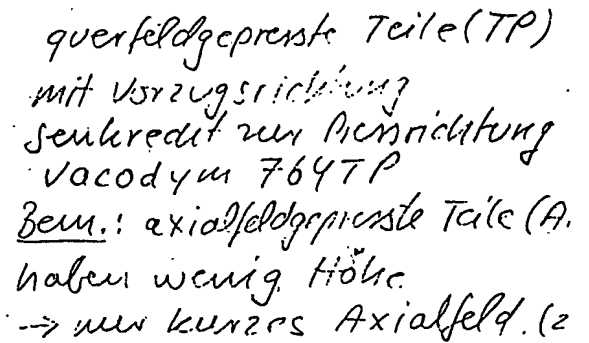 querfeldgepresste Teile (TP)
mit Vorzugsrichtung
senkrecht zur Pressrichtung
Vacodym 764TP
Bem.: axialfeldgepresste Teile (A.
haben wenig Höhe
-> nur kurzes Axialfeld. (z